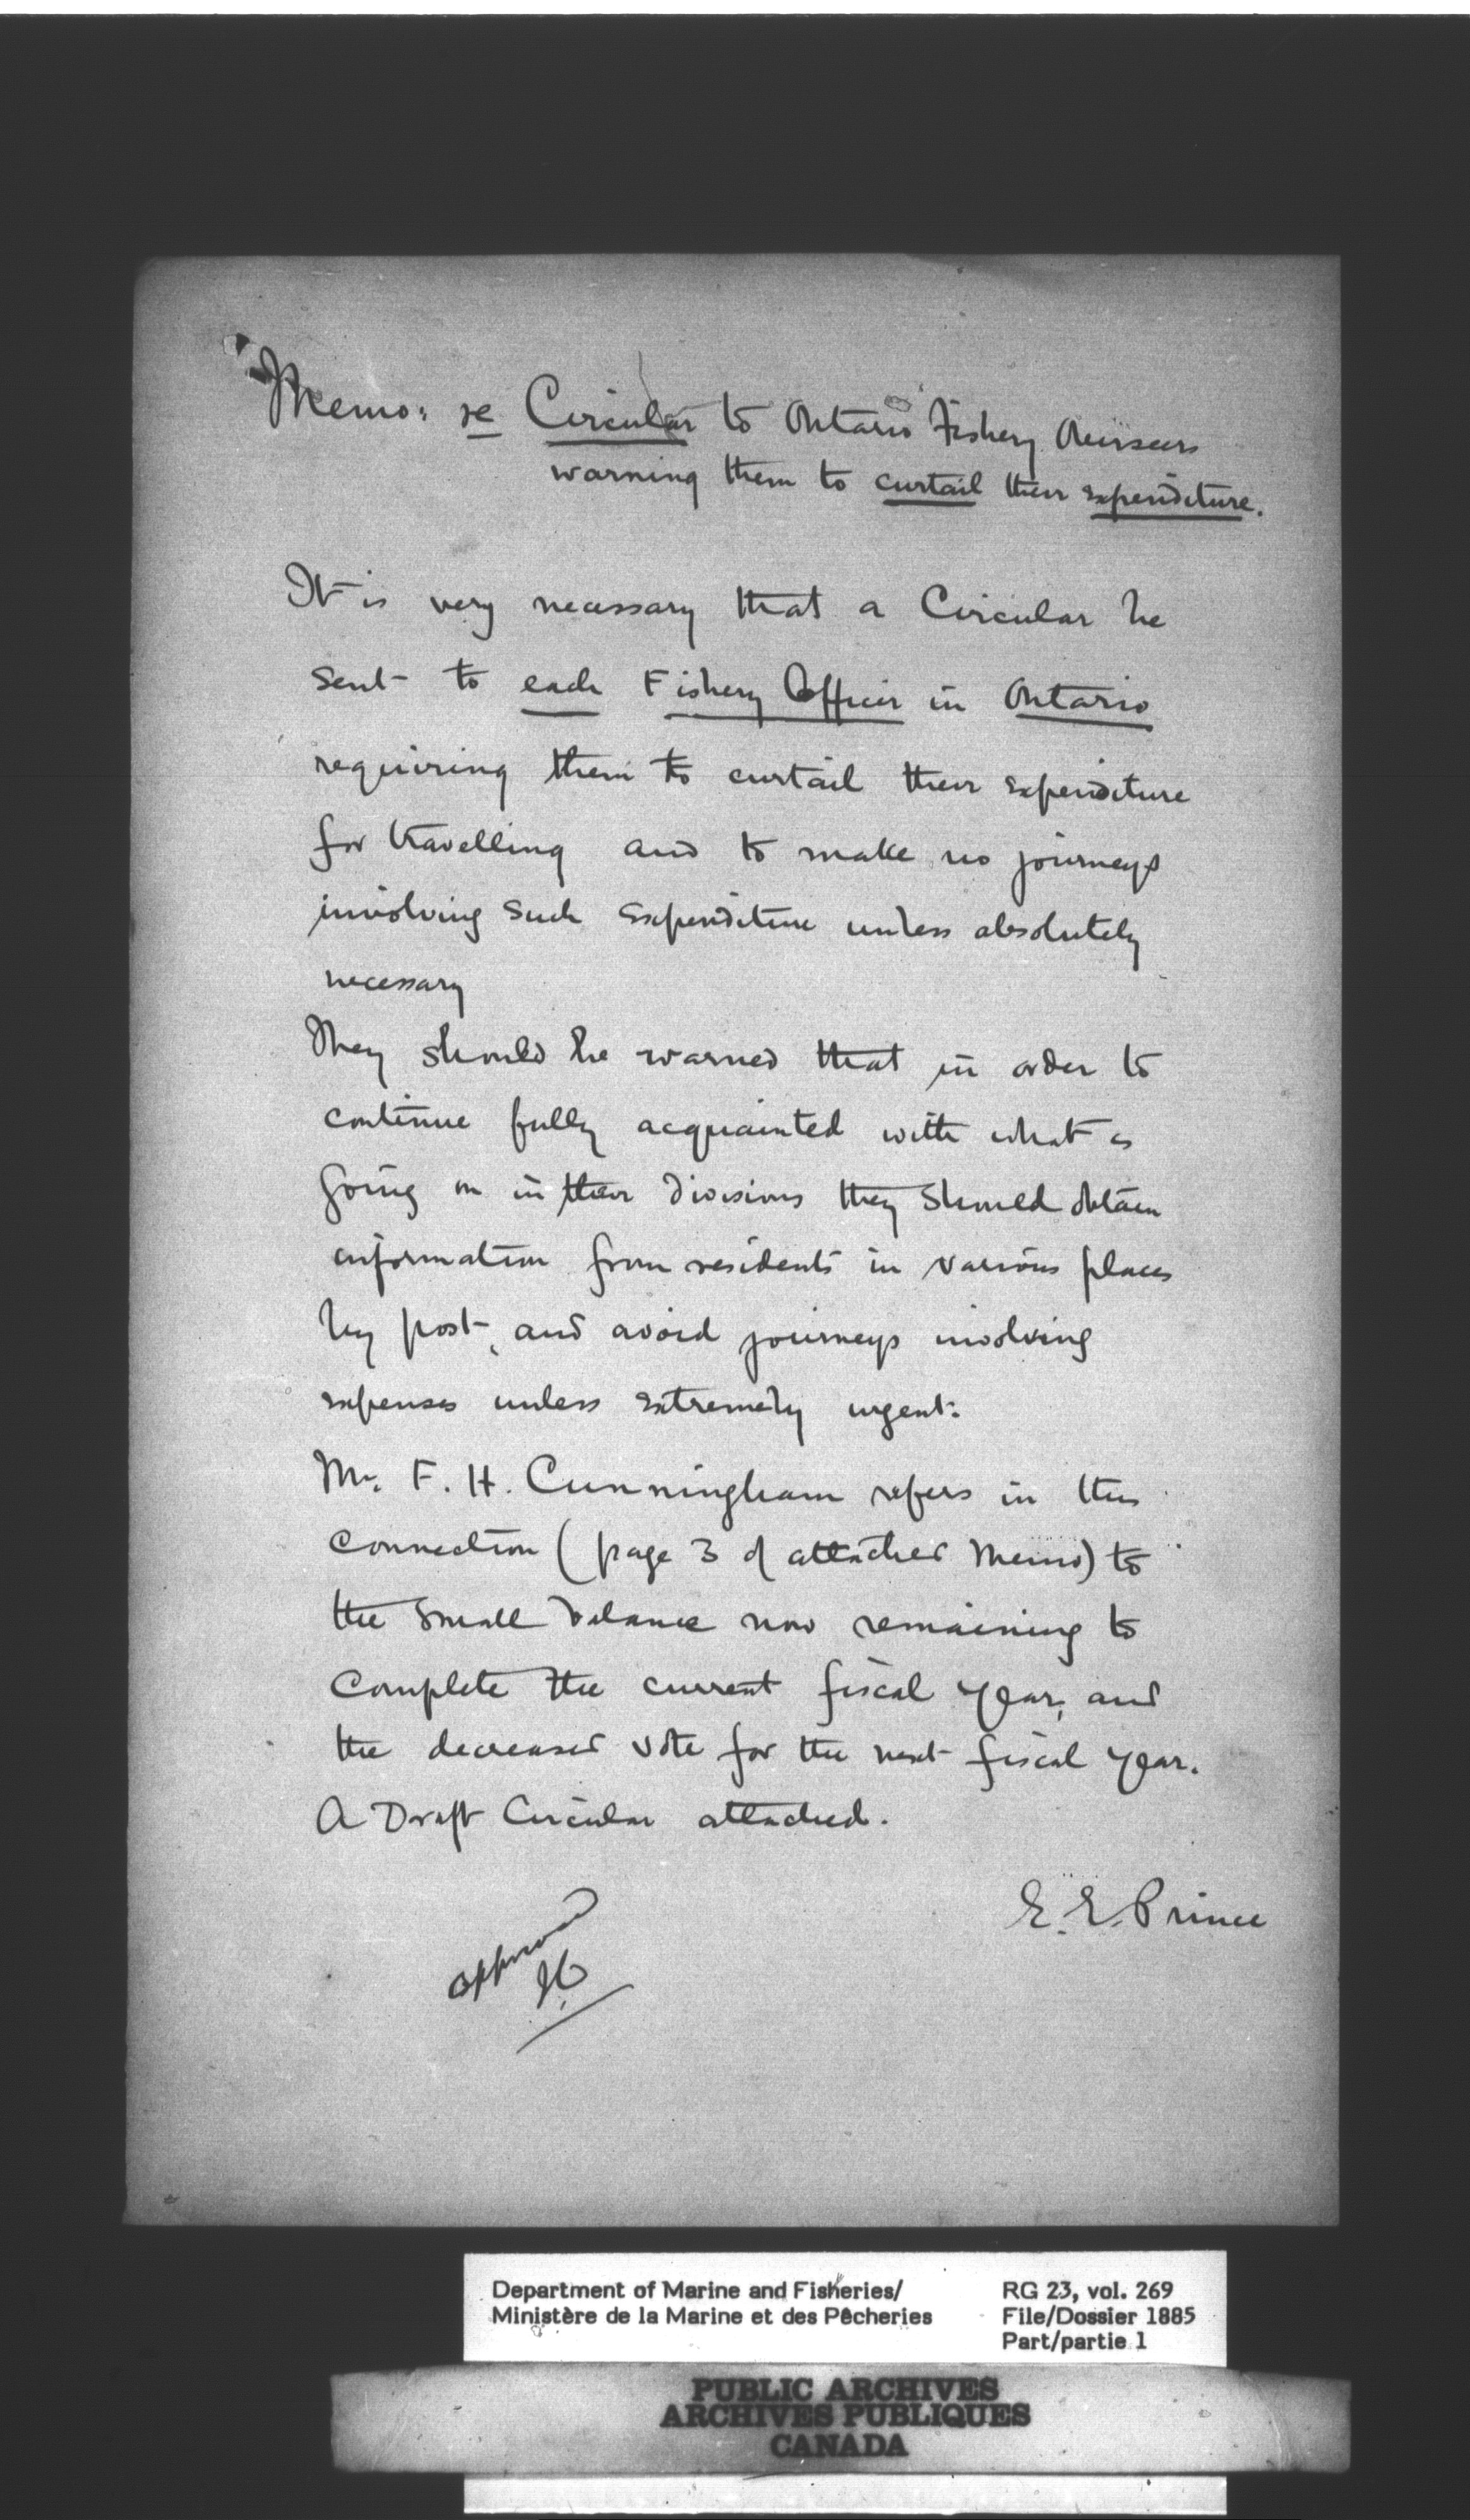 Memo: re Circular to Ontario Fishery Overseers
warning them to curtail their expenditure.
It is very necessary that a Circular be
sent to each Fishery Officer in Ontario
requiring them to curtail their expenditure
for travelling and to make no journeys
involving such expenditure unless absolutely
necessary
They should be warned that in order to
continue fully acquainted with what is
going on in their divisions they should obtain
information from residents in various places
by post, and avoid journeys involving
expenses unless extremely urgent.
Mr. F. H. Cunningham refers in this
connection (page 3 of attached Memo) to
the small balance now remaining to
complete the current fiscal year, and
the decreased vote for the next fiscal year.
A Draft Circular attached.
E. E. Prince
approved
Department of Marine and Fisheries/
Ministère de la Marine et des Pêcheries
RG 23, vol. 269
File/Dossier 1885
Part/partie 1
PUBLIC ARCHIVES
ARCHIVES PUBLIQUES
CANADA